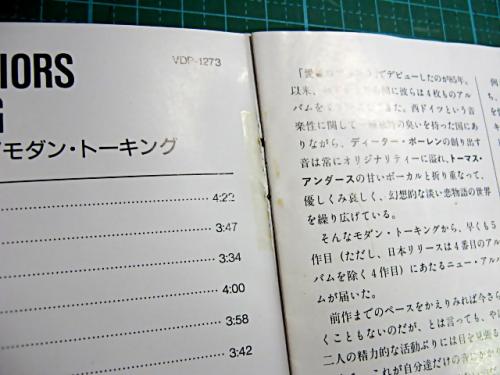 IORS
VDP-1273
G
モダン・トーキング
4:22
3:47
3:34
4:00
3:58
3:42
でデビューしたのが85年。
以来、
に彼らは4枚ものアル
バムを
西ドイツという音
楽性に関して
臭いを持った国にあ
りながら、ディーター・ボーレンの創り出す
音は常にオリジナリティーに溢れ、トーマス・
アンダースの甘いボーカルと折り重なって、
優しくみ哀しく、幻想的な淡い恋物語の世界
を繰り広げている。
そんなモダン・トーキングから、早くも5
作目(ただし、日本リリースは4番目のアル
バムを除く4作目)にあたるニュー・アルバ
ムが届いた。
前作までのペースをかえりみれば今さら
くこともないのだが、とは言っても、やは
二人の精力的な活動ぶりには目を見張る
何
ち、